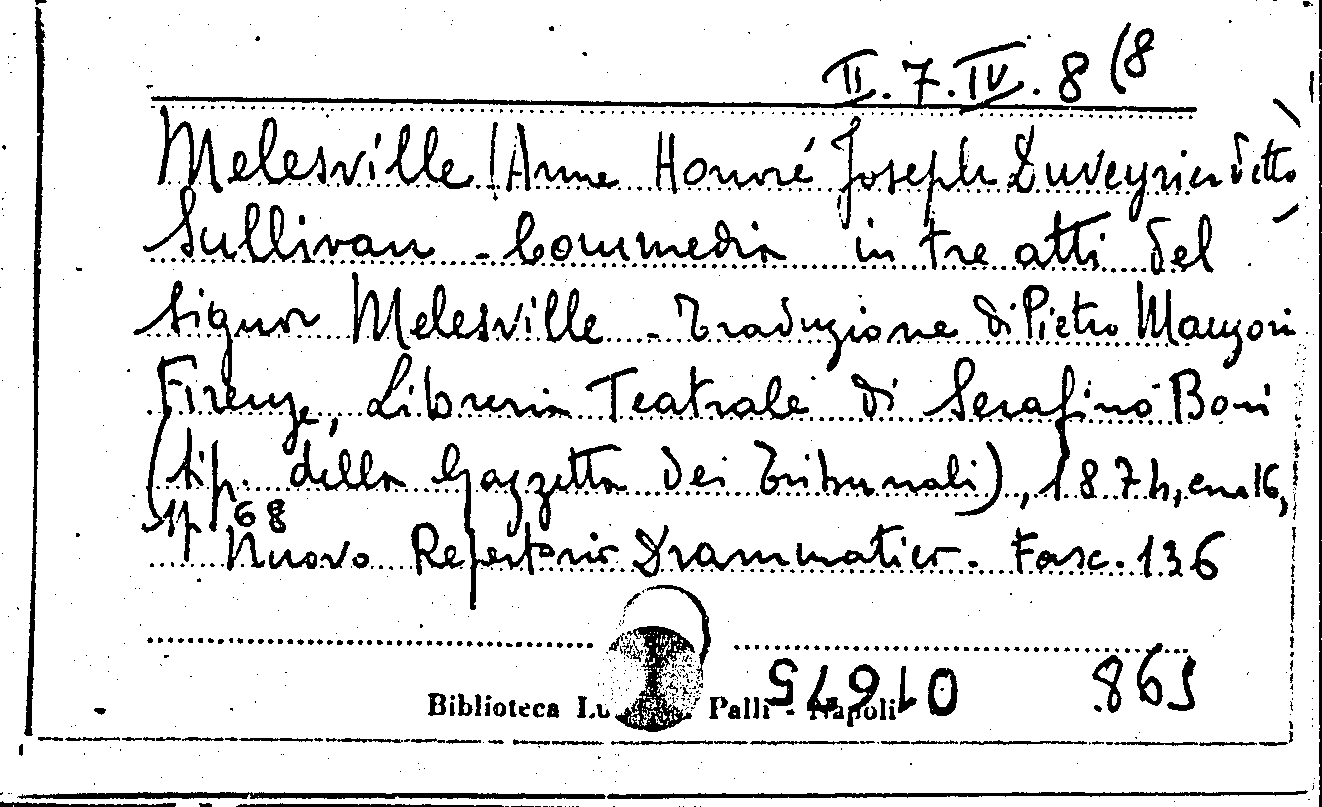 II. 7. IV. 8 (8
Melesville (Anne Honoré Joseph Duveyrier detto)
Sullivan - Commedia in tre atti del
signor Melesville - Traduzione di Pietro Manzoni
Firenze, Libreria Teatrale di Serafino Boni
(tip. della Gazzetta dei Tribunali), 187 16,
pp. 68
Nuovo Repertorio Drammatico. Fasc. 136
Biblioteca Palli - Napoli